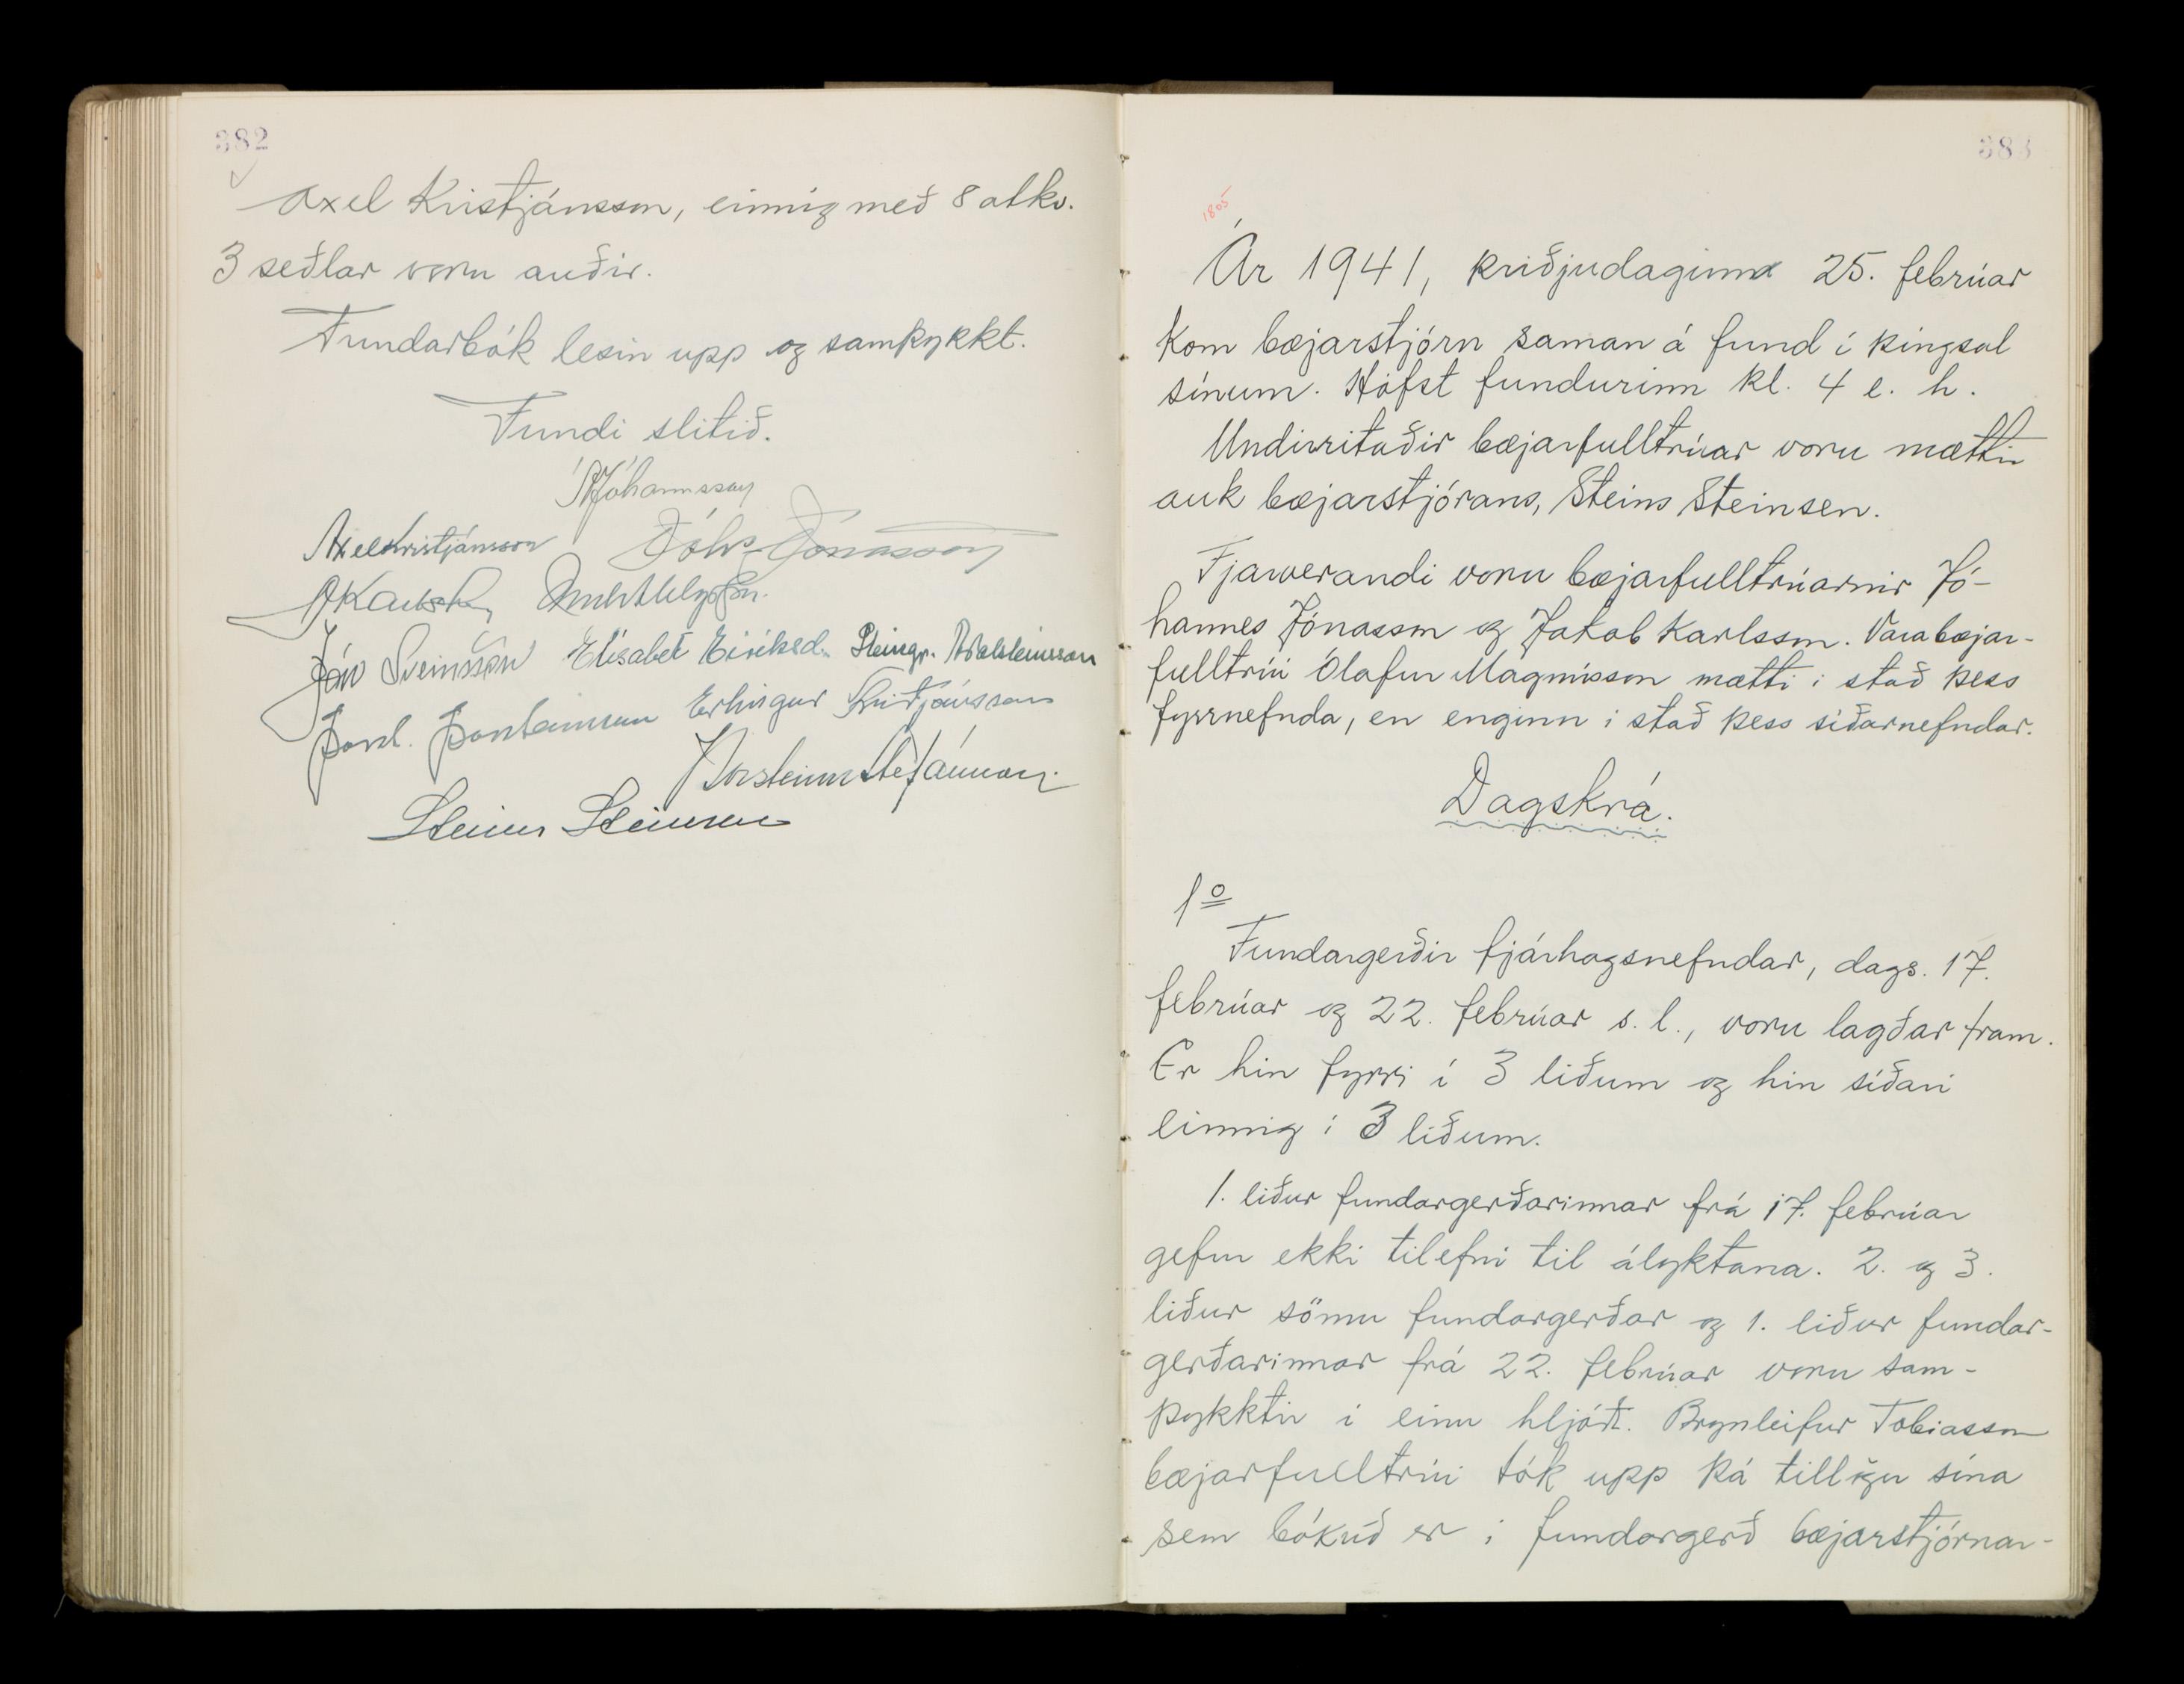 382
Axel Kristjánsson, einnig með 8 atkv.
3 seðlar voru auðir.
Fundarbók lesin upp og samþykkt.
Fundi slitið.
Jóhannsson
Axel Kristjánsson Jóhs Jónasson
Jón Sveinsson Elísabet Eiríksd. Steingr. Aðalsteinsson
Þorst. Þorsteinsson Erlingur Friðjónsson
Þorsteinn Stefánsson
Steinn Steinsen
383
1805
Ár 1941, þriðjudaginn 25. febrúar
kom bæjarstjórn saman á fund í þingsal
sínum. Hófst fundurinn kl. 4 e. h.
Undirritaðir bæjarfulltrúar voru mættir
auk bæjarstjórans, Steins Steinsen.
Fjarverandi voru bæjarfulltrúarnir Jó-
hannes Jónasson og Jakob Karlsson. Varabæjar-
fulltrúi Ólafur Magnússon mætti í stað þess
fyrrnefnda, en enginn í stað þess síðarnefndar.
Dagskrá.
1º
Fundargerðir fjárhagsnefndar, dags. 17.
febrúar og 22. febrúar s. l., voru lagðar fram.
Er hin fyrri í 3 liðum og hin síðari
einnig í 3 liðum.
1. liður fundargerðarinnar frá 17. febrúar
gefur ekki tilefni til ályktana. 2. og 3.
liður sömu fundargerðar og 1. liður fundar-
gerðarinnar frá 22. febrúar voru sam-
þykktir í einu hljóði. Brynleifur Tobiasson
bæjarfulltrúi tók upp þá tillögu sína
sem bókuð er í fundargerð bæjarstjórnar-